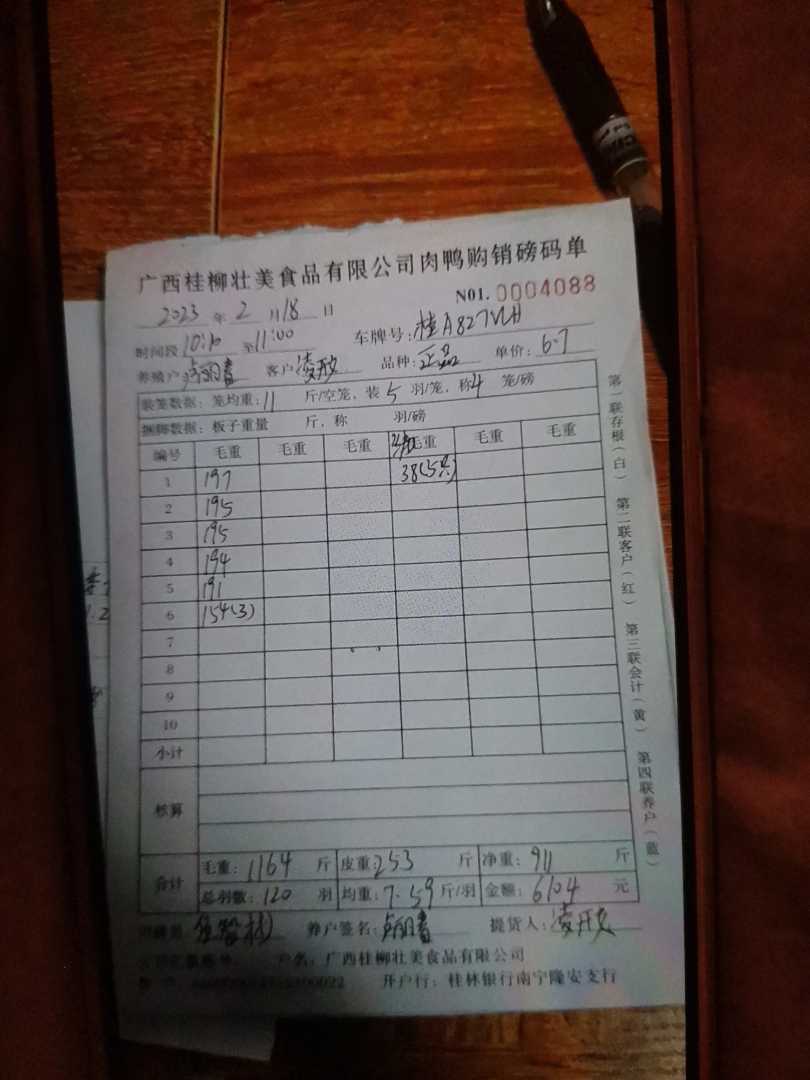 广西桂柳壮美食品有限公司肉鸭购销磅码单
NO1. 0004088
2023 年 2 月 18 日
时间段 10:10 至 11:00 车牌号: 桂A827VH
养殖户: 卢丽春 客户: 凌开 品种: 正品 单价: 6.7
装笼数据: 笼均重: 11 斤/空笼, 装 5 羽/笼, 称 4 笼/磅
捆脚数据: 板子重量 斤, 称 羽/磅
编号 毛重 毛重 毛重 毛重 毛重 毛重
1 197 38(5只)
2 195
3 195
4 194
5 191
6 154(3)
7
8
9
10
小计
核算
合计 毛重: 1164 斤 皮重: 253 斤 净重: 911 斤
总羽数: 120 羽 均重: 7.59 斤/羽 金额: 6104 元
养户签名: 卢丽春 提货人: 凌开
户名: 广西桂柳壮美食品有限公司
开户行: 桂林银行南宁隆安支行
第一联存根(白) 第二联客户(红) 第三联会计(黄) 第四联养户(蓝)